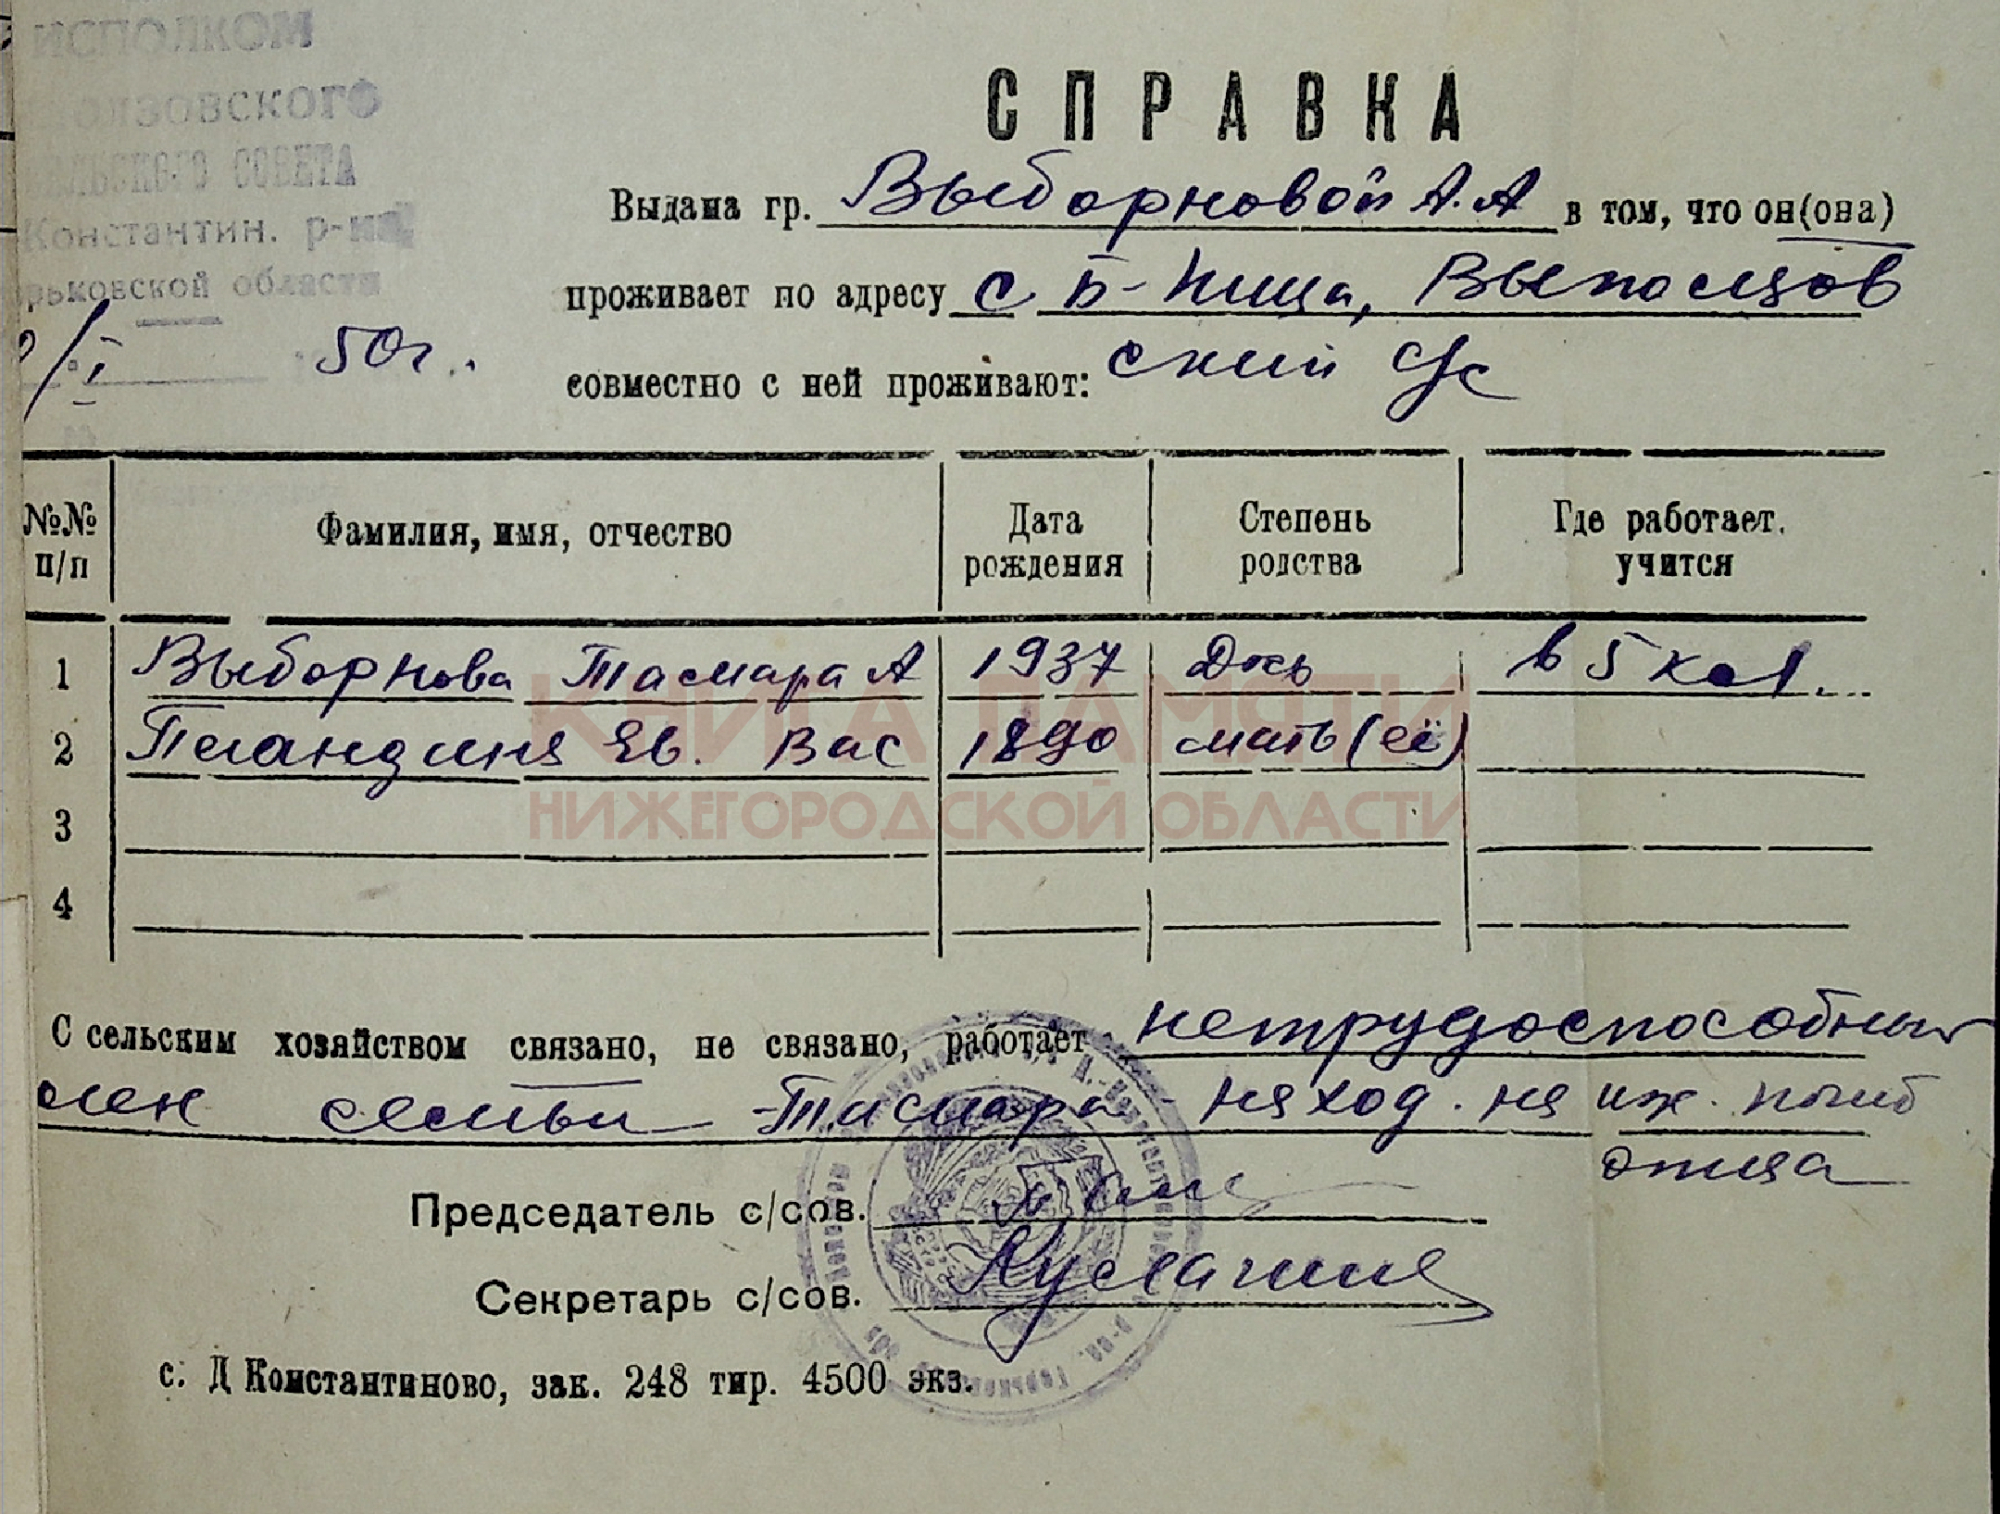 ИСПОЛКОМ
СОВЕТА
Константин. р-на
рьковской области
/I 50г.
СПРАВКА
Выдана гр. Выборновой А.А в том, что он(она)
проживает по адресу с Б-
совместно с ней проживают: ский с/с
№№ п/п Фамилия, имя, отчество Дата рождения Степень родства Где работает, учится
1 Выборнова Тамара А 1937 Дочь в 5 кл.
2 Ев. Вас 1890 мать (её)
3
4
КНИГА ПАМЯТИ
НИЖЕГОРОДСКОЙ ОБЛАСТИ
С сельским хозяйством связано, не связано, работает нетрудоспособный
член семьи - Тамара - наход. на иж. погиб
отца
Председатель с/сов.
Секретарь с/сов.
с. Д Константиново, зак. 248 тир. 4500 экз.